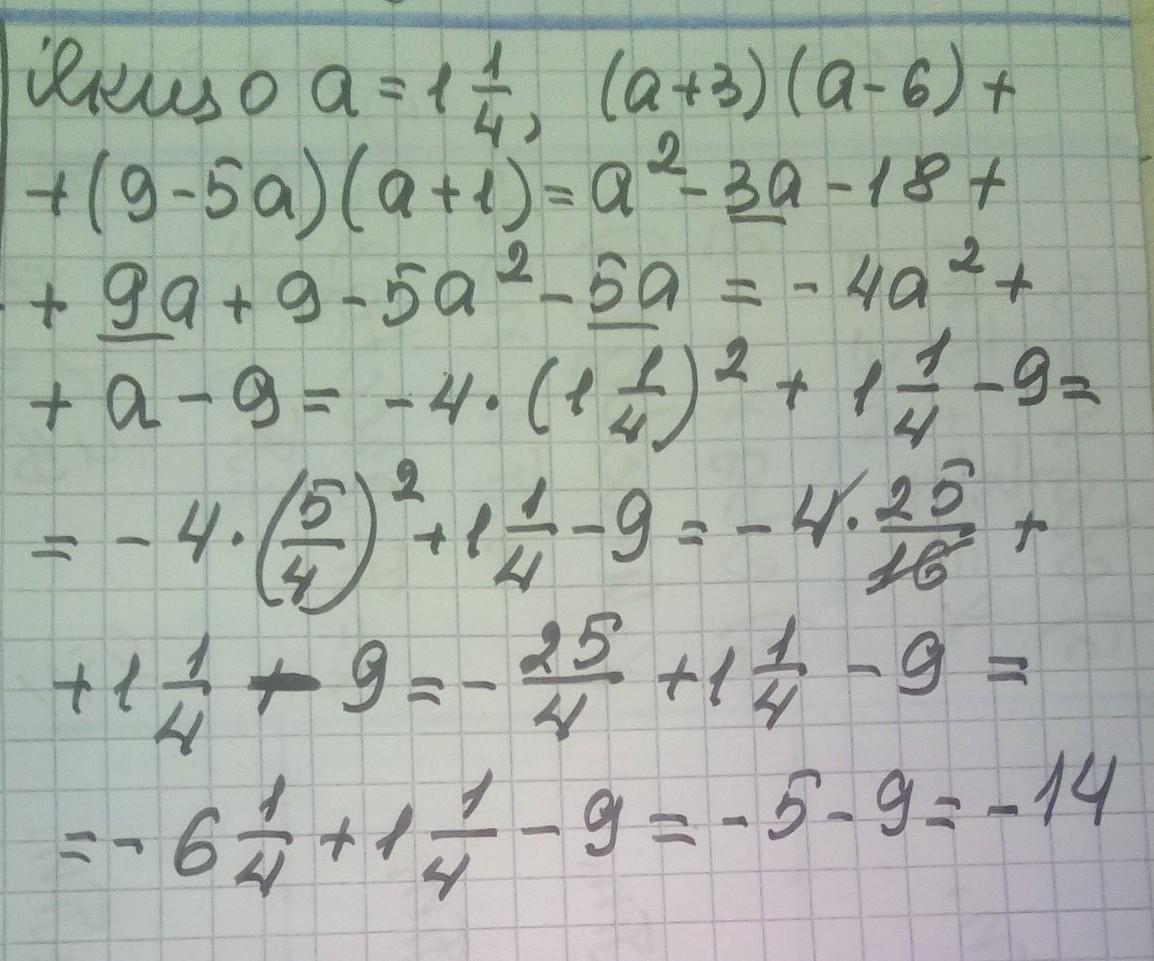 Якщо a = 1 1/4, (a+3)(a-6)+
+(9-5a)(a+1)=a²-3a-18+
+ 9a+9-5a²-5a = -4a²+
+ a-9= -4·(1 1/4)² + 1 1/4 -9=
= -4·(5/4)²+1 1/4-9= -4·25/16 +
+1 1/4 - 9=-25/4 +1 1/4 -9 =
=-6 1/4+1 1/4-9= -5-9=-14